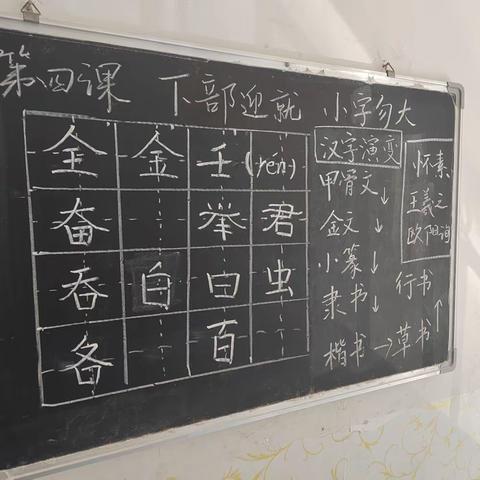 第四课 下部迎就 小字勿大
全 金 壬 (rén)
奋 举 君
吞 白 曰 虫
备 百
汉字演变
甲骨文 ↓
金文 ↓
小篆 ↓
隶书 ↓
楷书 → 草书 ↑
行书
怀素
王羲之
欧阳询